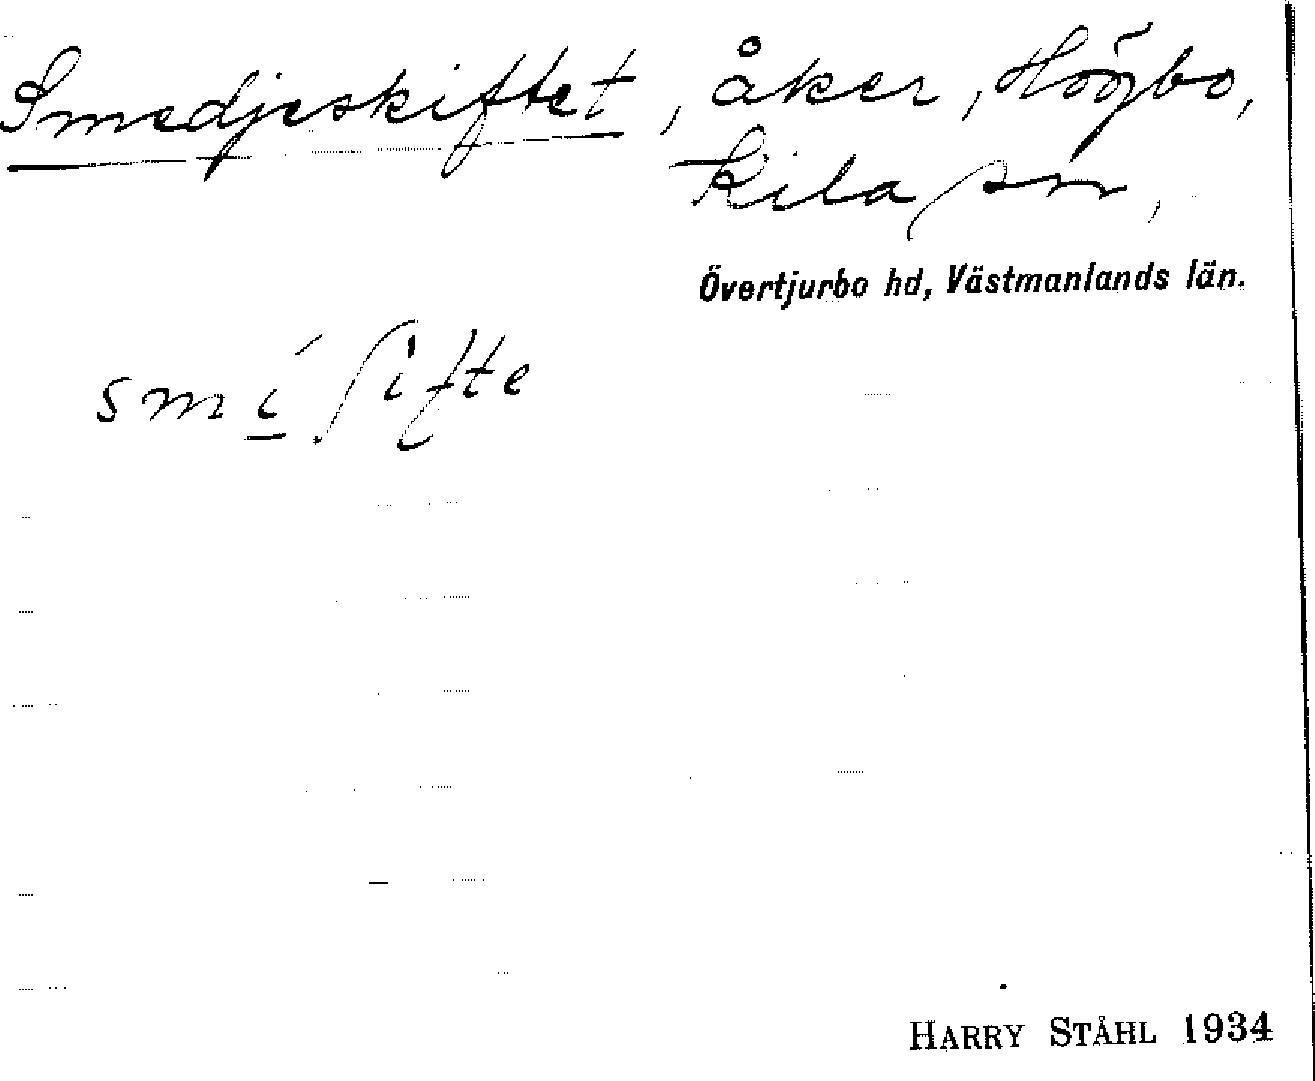 Smedjeskiftet, åker, Högbo,
Kila sn,
Övertjurbo hd, Västmanlands län.
smí̱ ʃifte
HARRY STÅHL 1934